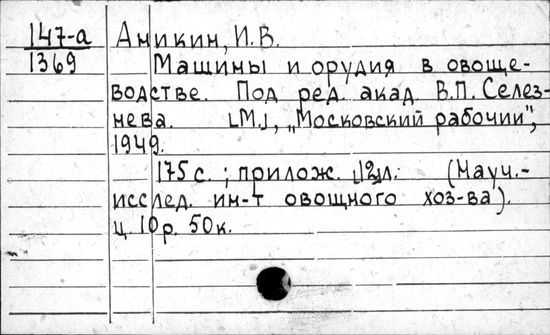 147-а Аникин, И.В.
1369 Машины и орудия в овоще-
водстве. Под ред. акад. В.П. Селез-
нева. [М.], „Московский рабочий",
1949.
175 с.; прилож. [12]л. (Науч.-
исслед. ин-т овощного хоз-ва).
ц. 10 р. 50 к.